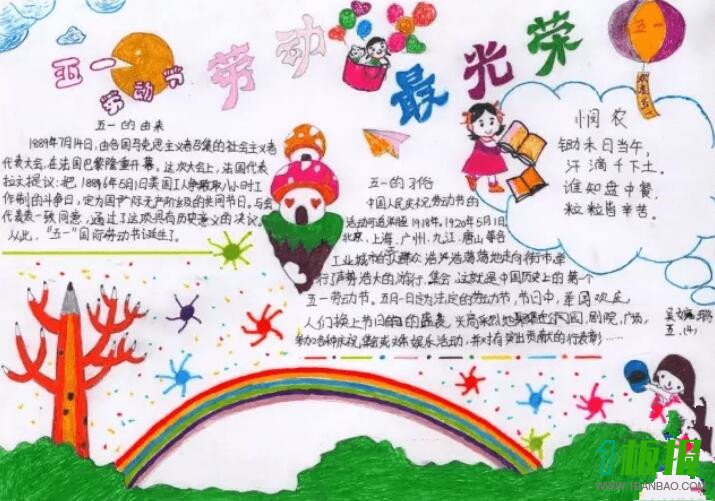 五一
劳动节
劳动
最光荣
五一
欢度五一
五一的由来
1889年7月14日,由各国马克思主义者召集的社会主义者
代表大会,在法国巴黎隆重开幕。这次大会上,法国代表
拉文提议:把1886年5月1日美国工人争取八小时工
作制的斗争日,定为国际无产阶级的共同节日。与会
代表一致同意,通过了这项具有历史意义的决议。
从此,“五一”国际劳动节诞生了。
五一的习俗
中国人民庆祝劳动节的
活动可追溯至1918年。1920年5月1日,
北京、上海、广州、九江、唐山等各
工业城市的群众浩浩荡荡地走向街市,举
行了声势浩大的游行、集会。这就是中国历史上的第一个
五一劳动节。五月一日定为法定的劳动节,节日中,举国欢庆,
人们换上节日的盛装,兴高采烈地聚集在公园、剧院、广场,
参加各种庆祝集会或文体娱乐活动,并对有突出贡献的行表彰……
悯农
锄禾日当午,
汗滴禾下土。
谁知盘中餐,
粒粒皆辛苦。
五.(4)
板报
WWW.1BANBAO.COM